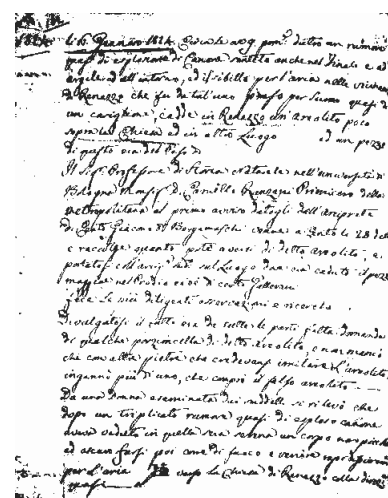 1824. li 16. Gennaro 1824. Circa le ore 9 pom. dietro un rumore
quasi di esplosione di Canone sentito anche nel Finale e ad
Argile ed all'interno, ed il sibillo per l'aria nelle vicinanze
di Renazzo che fu da taluno preso per suono quasi di
un cariglione, cadde in Renazzo un areolito poco
sopra la Chiesa ed in altro Luogo ed un pezzo
di questo era del Peso di
Il Sig. Professore di Storia Naturale nell'università di
Bologna Monsig. D. Camillo Ranzani Primicero della
Metropolitana al primo avviso datogli dall'Arciprete
di Cento Girolamo Bergamaschi venne a Cento le 28 detto
e raccolse quanto potè avere di detto areolito, e
portatosi sul Luogo dove era caduto il pezzo
maggiore nel Predio
fece le più diligenti osservazioni e ricerche
Divulgatosi il fatto era da tutte le parti fatta domanda
di qualche particella di detto areolito, e non mancò
chi con altra pietra che credevasi imitare l'areolito,
ingannò più di uno, che comprò il falso areolito
Da una donna esaminata dai suddetti si rilevò che
dopo un triplicato rumore quasi di esploso canone
aveva veduto in quella sera un corpo
ad ascen farsi poi come di fuoco e venire
per l'aria verso la Chiesa di Renazzo
quasi